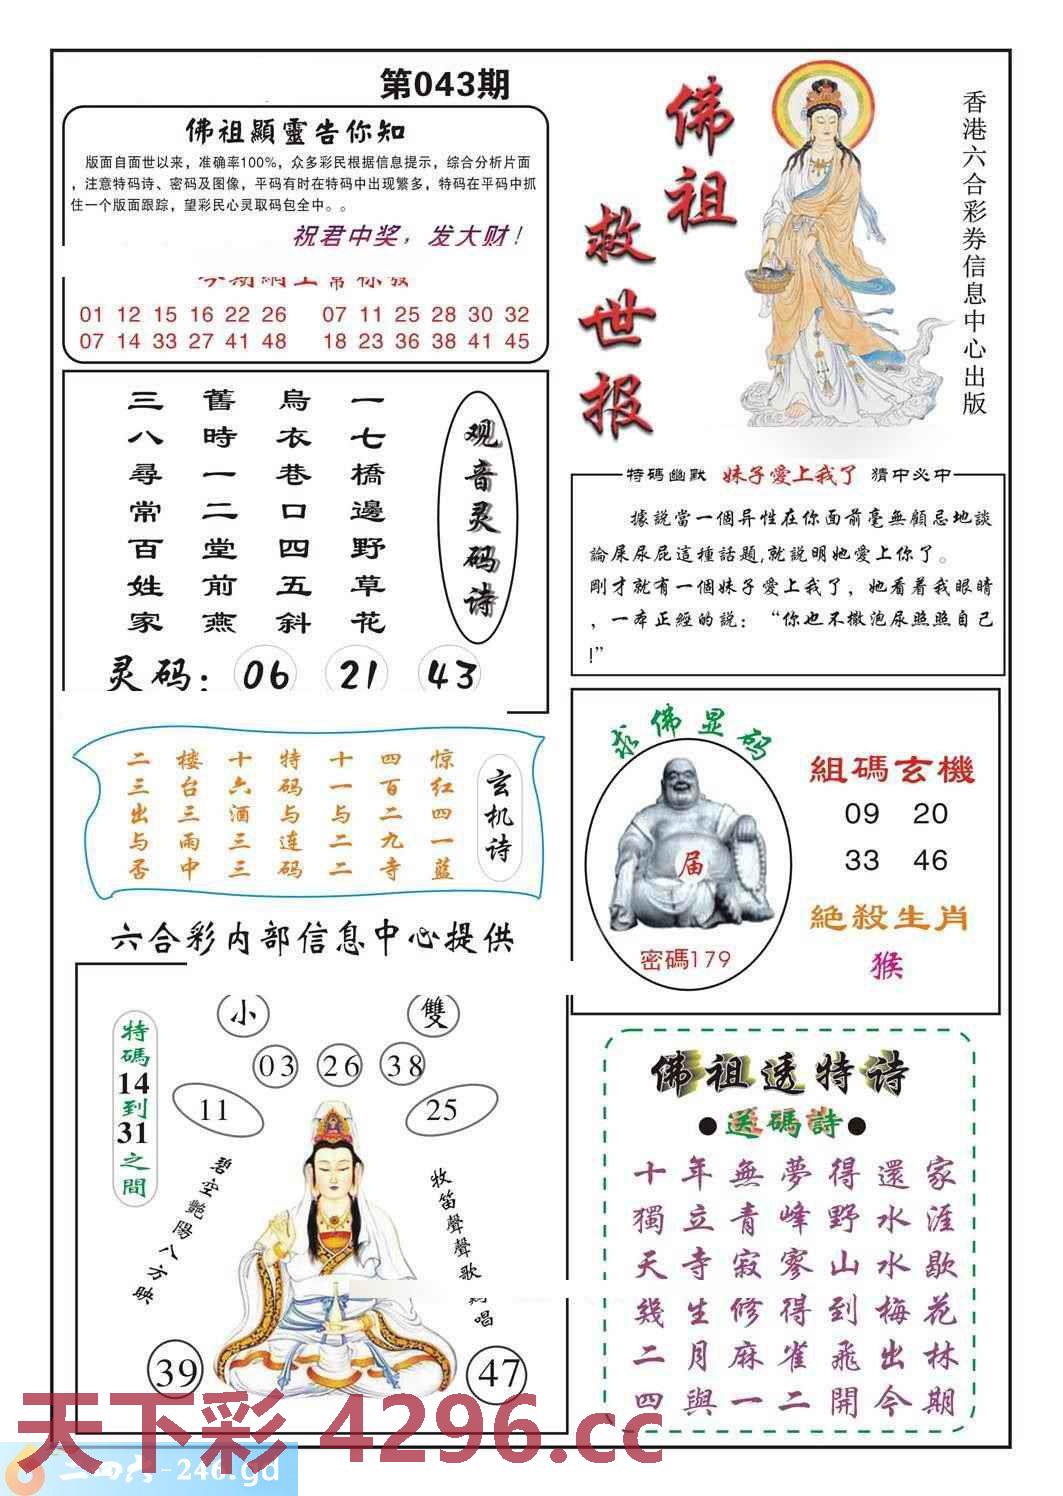 第043期
佛祖顯靈告你知
版面自面世以来，准确率100%，众多彩民根据信息提示，综合分析片面
，注意特码诗、密码及图像，平码有时在特码中出现繁多，特码在平码中抓
住一个版面跟踪，望彩民心灵取码包全中。。
祝君中奖，发大财！
01 12 15 16 22 26 07 11 25 28 30 32
07 14 33 27 41 48 18 23 36 38 41 45
佛祖
救世报
香港六合彩券信息中心出版
观音灵码诗
一七橋邊野草花
烏衣巷口四五斜
舊時一二堂前燕
三八尋常百姓家
灵码：06 21 43
特碼幽默 妹子愛上我了 猜中必中
據説當一個异性在你面前毫無顧忌地談
論屎尿屁這種話題,就説明她愛上你了。
剛才就有一個妹子愛上我了，她看着我眼睛
，一本正經的説：“你也不撒泡尿照照自己
!”
玄机诗
惊红四一蓝
四百二九寺
十一与二二
特码与连码
十六酒三三
楼台三雨中
二三出与否
求佛显码
届
密碼179
組碼玄機
09 20
33 46
絕殺生肖
猴
六合彩内部信息中心提供
特碼14到31之間
小 雙
03 26 38
11 25
碧空艷陽八方映
牧笛聲聲歌 唱
39 47
佛祖透特诗
●送碼詩●
十年無夢得還家
獨立青峰野水涯
天寺寂寥山水歇
幾生修得到梅花
二月麻雀飛出林
四與一二開今期
天下彩 4296.cc
二四六-246.gd